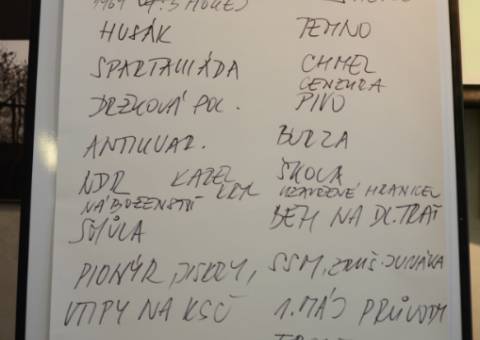 1969 4:3 HOKEJ
HUSÁK
SPARTAKIÁDA
DRŽKOVÁ POL.
ANTIKVAR.
NDR KAREL KRYL
NÁBOŽENSTVÍ
SMŮLA
PIONÝR, JISKRY,
VTIPY NA KSČ
TEMNO
CHMEL
CENZURA
PIVO
BURZA
ŠKOLA
UZAVŘENÉ HRANICE
BĚH NA DL. TRAŤ
SSM, ZRUŠ. JUNÁKA
1. MÁJ PRŮVODY